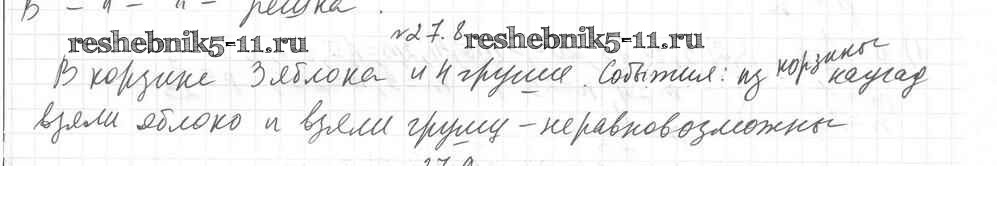 В – " – " – решка.
№27.8
reshebnik5-11.ru reshebnik5-11.ru
В корзине 3 яблока и 4 груши. События: из корзины наугад
взяли яблоко и взяли грушу – неравновозможны
27.9